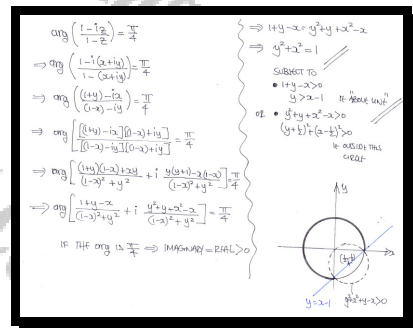 arg (1-iz / 1-z) = π/4
⇒ arg (1-i(x+iy) / 1-(x+iy)) = π/4
⇒ arg ((1+y)-ix / (1-x)-iy) = π/4
⇒ arg [[(1+y)-ix][(1-x)+iy] / [(1-x)-iy][(1-x)+iy]] = π/4
⇒ arg [(1+y)(1-x)+xy / (1-x)²+y² + i y(y+1)-x(1-x) / (1-x)²+y²] = π/4
⇒ arg [1+y-x / (1-x)²+y² + i y²+y+x²-x / (1-x)²+y²] = π/4
IF THE arg IS π/4 ⇒ IMAGINARY = REAL > 0
⇒ 1+y-x = y²+y+x²-x
⇒ y²+x² = 1
SUBJECT TO
• 1+y-x>0
y > x-1 IE "ABOVE LINE"
OR • y²+y+x²-x>0
(y+½)²+(x-½)²>
IE OUTSIDE THIS
CIRCLE
y
x
y=x-1
y²+x²+y-x>0